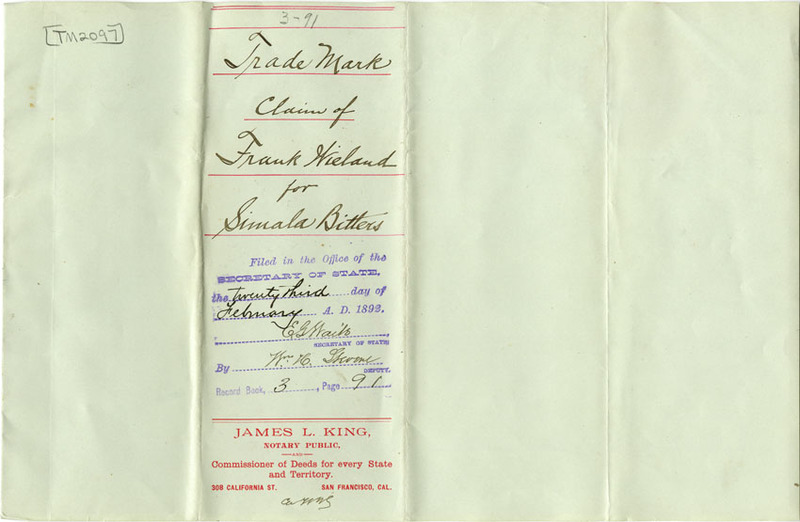 TM2097
3-91
Trade Mark
Claim of
Frank Wieland
for
Simala Bitters
Filed in the Office of the
SECRETARY OF STATE,
the twenty third day of
February A. D. 1892.
E G Waite,
SECRETARY OF STATE
By Wm. H.
DEPUTY.
Record Book, 3, Page 91
JAMES L. KING,
NOTARY PUBLIC,
AND
Commissioner of Deeds for every State
and Territory.
308 CALIFORNIA ST. SAN FRANCISCO, CAL.